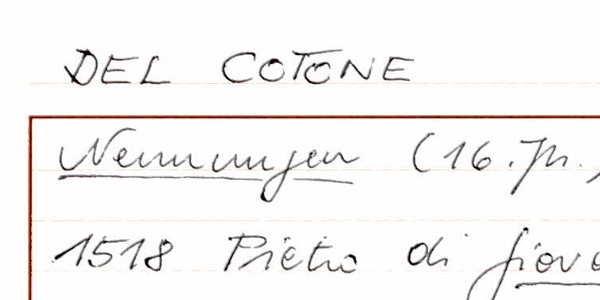 DEL COTONE
Nennungen (16. Jh.,
1518 Pietro di Giova